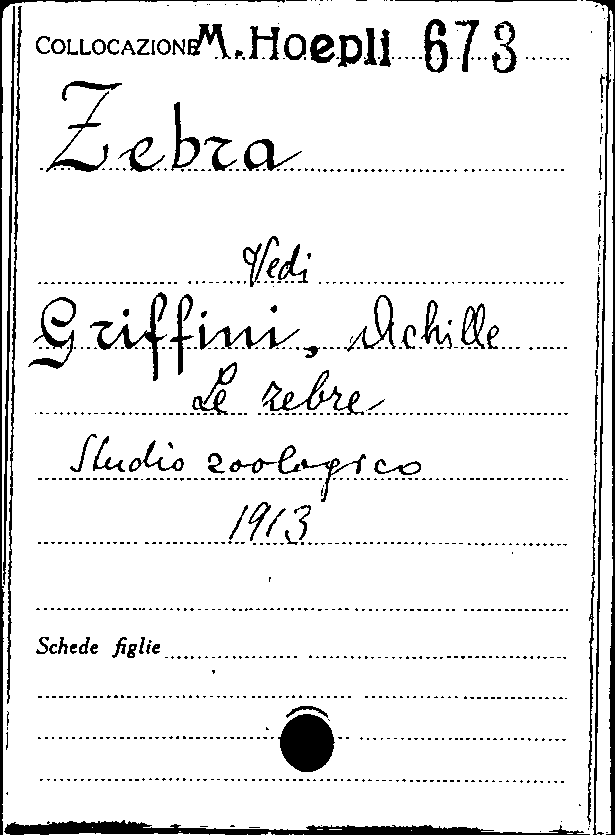 COLLOCAZIONE M. Hoepli 673
Zebra
Vedi
Griffini, Achille
Le zebre
Studio zoologico
1913
Schede figlie